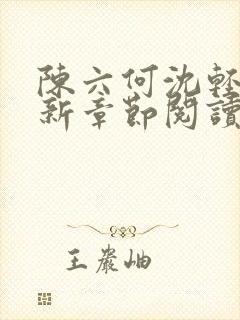 陳六何沈輕
新章節閱讀
王巖岫